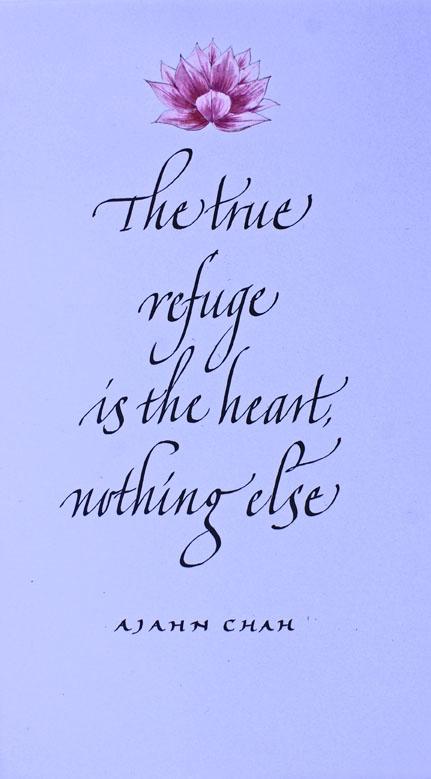 The true
refuge
is the heart,
nothing else
AJAHN CHAH